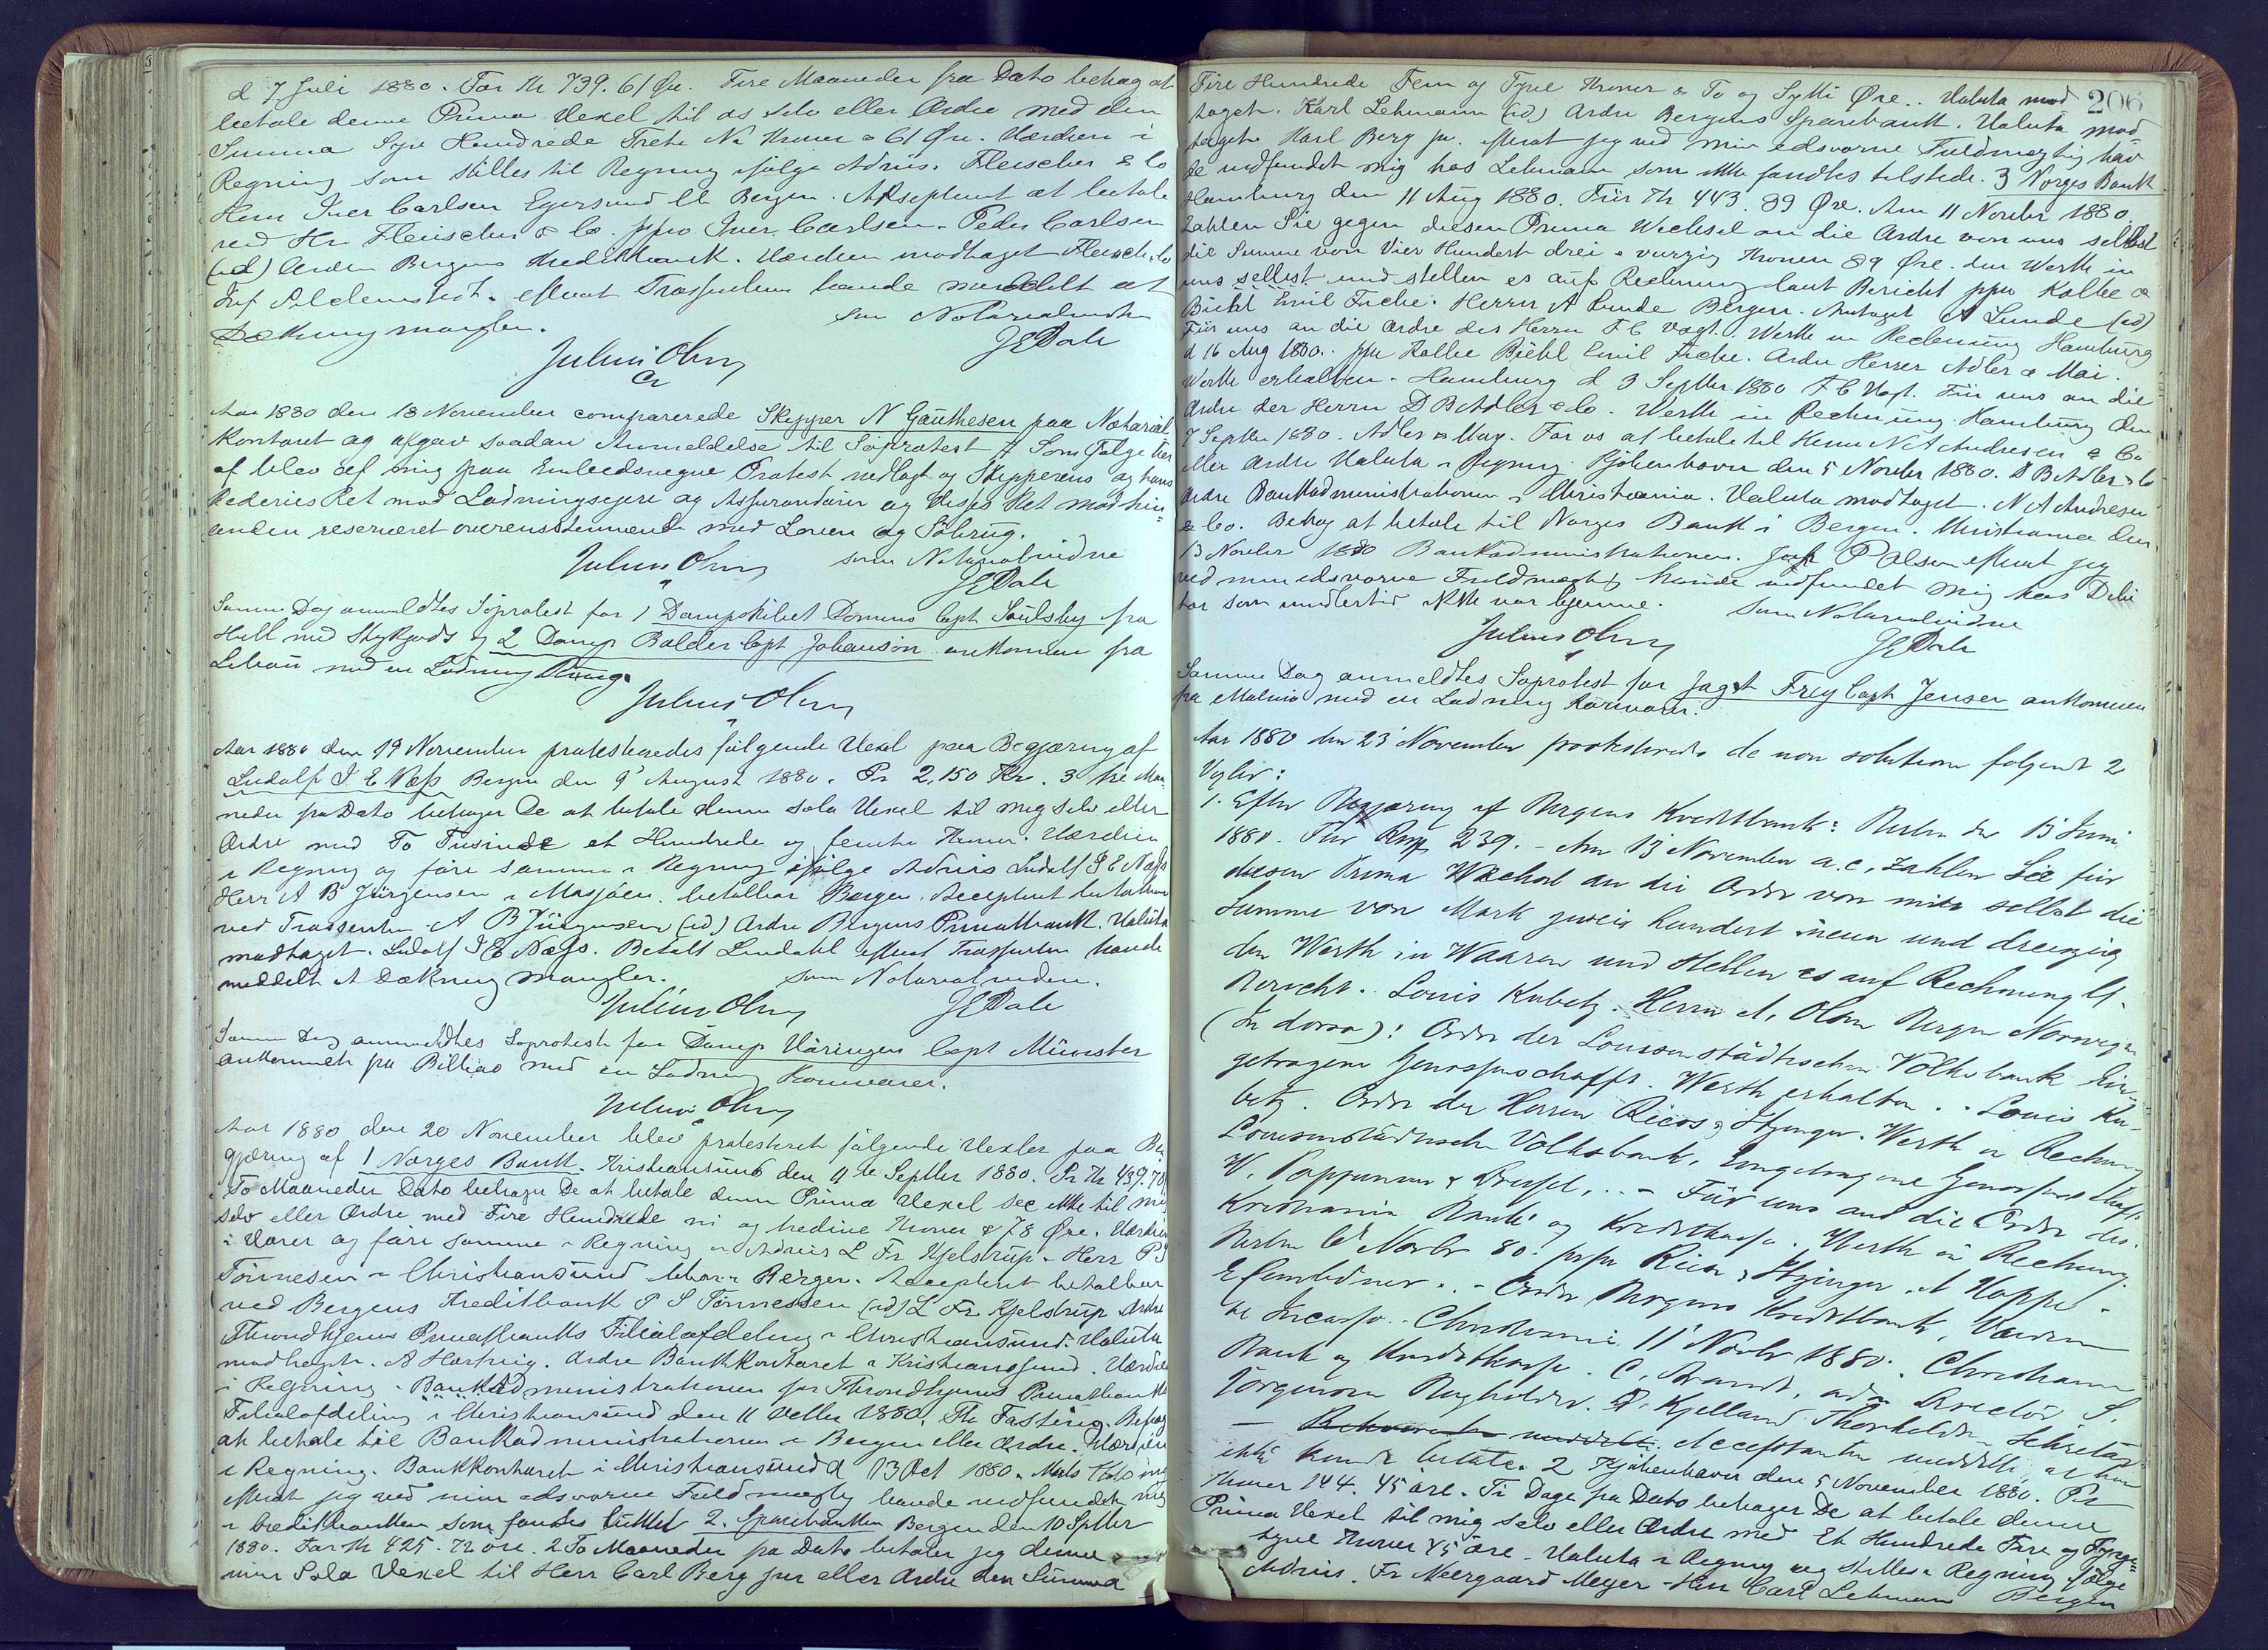 d 7 Juli 1880. For Kr 739. 61 Øre. Fire Maaneder fra Dato behag at
betale denne Prima Vexel til os selv eller Ordre med den
Summa Syv Hundrede Treti Ni Kroner & 61 Øre. Værdien i
Regning som stilles til Regning ifølge Advis. Fleischer & Co
Herr Iver Carlsen Egersund Bergen. Aksepteret at betale
ved Hr Fleischer & Co. ppro Iver Carlsen. Peder Carlsen
(id) Orden Bergens Kreditbank. Værdien modtaget Fleisch & Co
efterat Trassenten havde meddelt at
Dækning mangler. som Notarialvidne
Julius Olsen JEDale
Aar 1880 den 18 November comparerede Skipper N Gauthesen paa Notarial
Kontoret og afgav saadan Anmeldelse til Søprotest Som Følge her
af blev af mig paa Embedsvegne Protest nedlagt og Skipperens og hans
Rederies Ret mod Ladningseiere og Assurandører og Disses Ret mod hin=
anden reserveret overensstemmende med Loven og Söbrug.
Julius Olsen som Notarialvidne
JEDale
Samme Dag anmeldtes Søprotest for 1 Dampskibet Domino Capt Soulsby fra
Hull med Stykgods og 2 Damp Balder Capt Johanson ankommen fra
Libau med en Ladning Rug.
Julius Olsen
Aar 1880 den 19 November protesteredes følgende Vexel paa Begjæring af
Ludolf I E Næss Bergen den 9' August 1880. Pr 2,150 Kr. 3 tre Maa
neder fra Dato behager De at betale denne sola Vexel til mig selv eller
Ordre med To Tusinde et Hundrede og femti Kroner. Værdien
i Regning og føre samme i Regning ifølge Advis Ludolf I E Næss
Herr A B Jürgensen i Mosjöen. betalbar Bergen. Accepteret betalbar
ved Trassenten A B Jürgensen (id) Ordre Bergens Privatbank. Valuta
modtaget. Ludolf I E Næss. Betalt Lindahl efterat Trassenten havde
meddelt at Dækning mangler. som Notarialvidne.
Julius Olsen JEDale
Samme Dag anmeldtes Søprotest for Damp Væringen Capt Münster
ankommet fra Bilbao med en Ladning Kornvarer.
Julius Olsen
Aar 1880 den 20 November blev protesteret følgende Vexler paa Be
gjæring af 1 Norges Bank. Kristiansund den 11te Septbr 1880. Pr Kr 439.78
To Maaneder Dato behager De at betale denne Prima Vexel sec ikke til mig
selv eller Ordre med Fire Hundrede ni og tredive Kroner & 78 Øre. Værdien
i Varer og føre samme i Regning Advis L Fr Kjelstrup. Herr P S
Tönnesen i Christiansund Bergen. Accepteret betalbar
ved Bergens Kreditbank P S Tönnessen (id) L Fr Kjelstrup Ordre
Throndhjems Privatbanks Filialafdeling i Christiansund. Valuta
modtaget. Ordre Bankkontoret i Kristianssund. Værdi
i Regning. Bankadministrationen for Throndhjems Privatbanks
Filialafdeling i Christiansund den 11 1880. Th Fasting. Behag
at betale til Bankadministrationen i Bergen eller Ordre. Værdien
i Regning. Bankkontoret i Christiansund d 13 Oct 1880.
efterat jeg ved min edsvorne Fuldmægtig havde indfundet mig
i Creditbanken som fandtes lukket 2. Sparebanken Bergen den 10 Septbr
1880. For Kr 425. 72 öre. 2 To Maaneder fra Dato betaler jeg denne
min Sola Vexel til Herr Carl Berg jun eller Ordre den Summa
206
Fire Hundrede Fem og Tyve Kroner & To og Sytti Øre.. Valuta mod
taget. Karl Lehmann (id) Ordre Bergens Sparebank. Valuta mod
taget Karl Berg jr. efterat jeg ved min edsvorne Fuldmægtig hav
de indfundet mig hos Lehmann som ikke fandtes tilstede. 3 Norges Bank
Hamburg den 11 Aug 1880. Für Kr. 443. 89 Øre. Am 11 Novbr 1880.
zahlen Sie gegen diesen Prima Wechsel an die Ordre von uns selbst
die Summe von Vier Hundert drei & vierzig Kronen 89 Øre. den Werth in
uns selbst und stellen es auf Rechnung laut Bericht ppa Kolbe &
Biehl Emil Fiche. Herrn A Lunde Bergen. Antaget A Lunde (id)
Für uns an die Ordre des Herrn F C Vogt. Werth in Rechnung Hamburg
d 16 Aug 1880.. ppa Kolbe Biehl Emil Fiche. Ordre Herrer Adler & Mai.
Werth erhalten. Hamburg d 3 Septbr 1880 F C Vogt. Für uns an die
Ordre der Herrn D B Adler & Co. Werth in Rechnung Hamburg den
7 Septbr 1880. Adler & May. For os at betale til Herrer N A Andresen & Co
eller Ordre Valuta i Regning. Kjöbenhavn den 5 Novbr 1880. D B Adler & Co
Ordre Bankadministrationen i Christiania. Valuta modtaget. N A Andresen
& Co. Behag at betale til Norges Bank i Bergen. Christiania den
13 Novbr 1880 Bankadministrationen. P Olsen efterat jeg
ved min edsvorne Fuldmægtig havde indfundet mig hos Debi
tor som imidlertid ikke var hjemme. som Notarialvidne
Julius Olsen JEDale
Samme Dag anmeldtes Søprotest for Jagt Frey Capt Jensen ankommen
fra Malmö med en Ladning Kornvarer.
Aar 1880 den 23' November protesteredes de non solutione følgende 2
Vexler:
1. Efter Begjæring af Bergens Kreditbank: Berlin den 15 Juni
1880. Für Rmk 239. - Am 13 November a.c. zahlen Sie für
diesen Prima Wechsel an die Ordre von mir selbst die
Summe von Mark zwei hundert neun und dreizig
den Werth in Waaren und stellen es auf Rechnung lt.
Bericht. Louis Kubetz. Herrn A. Olsen Bergen Norwegen
(In dorso): Ordre der Louisenstädtischen Volksbank Ein-
getragene Genossenschafft. Werth erhalten. . Louis Ku-
betz. Ordre der Herren Riess & Itzinger. Werth in Rechnung
Louisenstädtische Volksbank, Eingetragene Genossenschaft
W. Poppenauer & Dressel, .. - Für uns and die Ordre der
Kristiania Bank og Kreditkasse. Werth in Rechnung.
Berlin 6' Novbr 80. ppa Riess & Itzinger. A Hoppe -
. - Ordre Bergens Kreditbank, Værdien
til Incasso. Christiania 11' Novbr 1880. Christiania
Bank og Kreditkasse. C. Brandt, adm Director, S.
Jörgensen Bogholder. Kjelland Thorkelsen Sekretær
— Acceptanten meddelte, at han
ikke kunde betale. 2 Kjøbenhavn den 5 November 1880. Pr
Kroner 144. 45 öre. Ti Dage fra Dato behager De at betale denne
Prima Vexel til mig selv eller Ordre med Et Hundrede Fire og Fyrge=
tyve Kroner 45 öre. Valuta i Regning og stilles i Regning ifølge
Advis. Fr Neergaard Meyer Herr Carl Lehmann Bergen